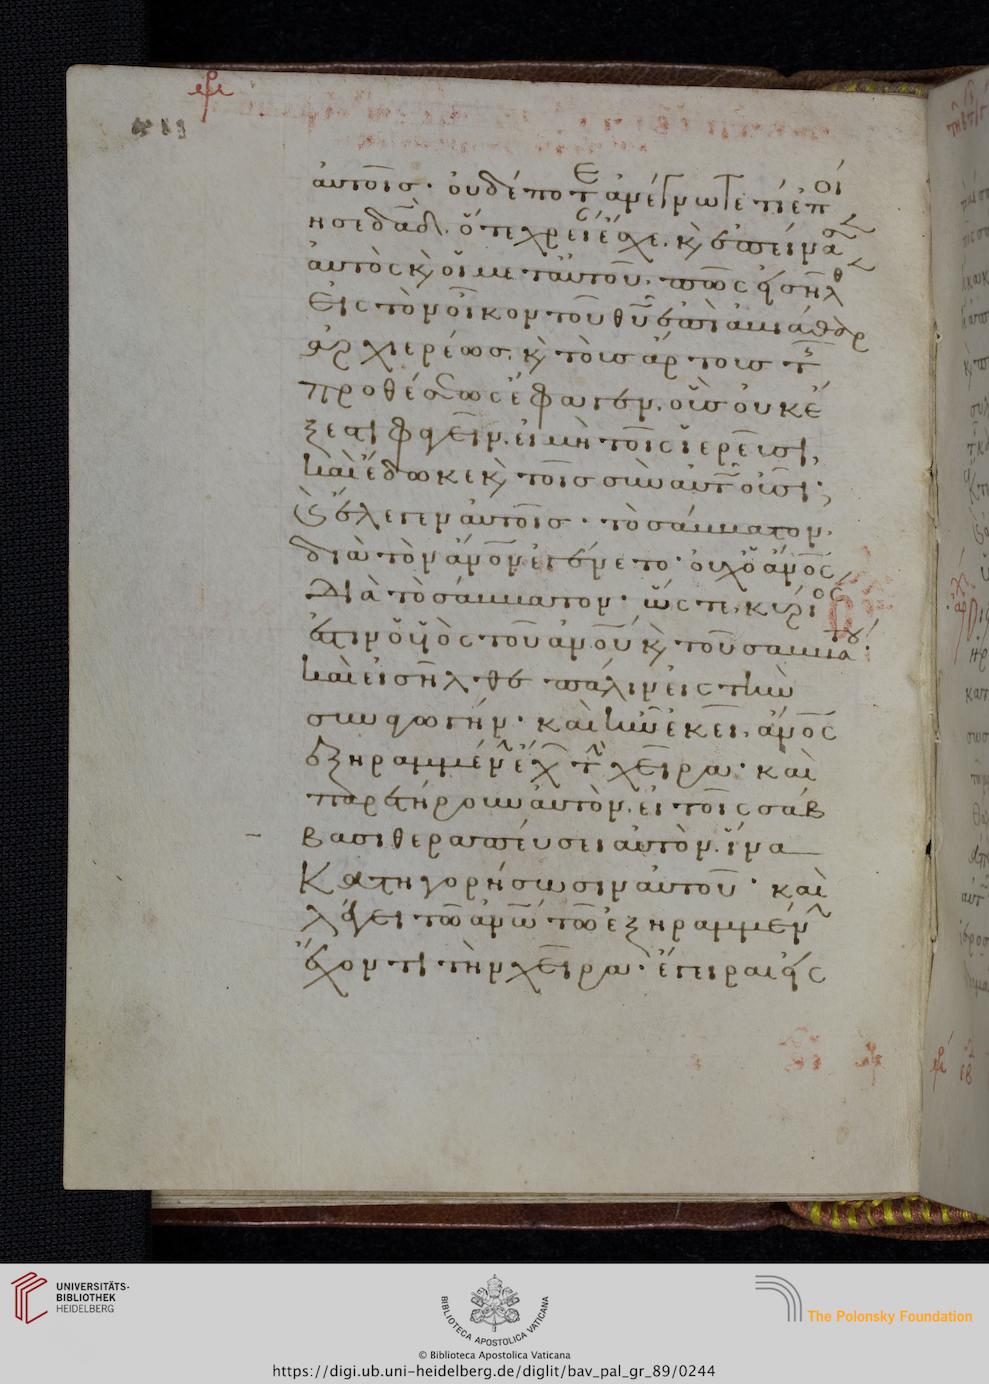 αὐτοῖς· οὐδέποτε ἀνέγνωτε τί ἐποί
ησε δαδ. ὅτε χρείαν ἔσχε. κ ἐπείνασεν
αὐτὸς κ οἱ μετ αὐτοῦ· πῶς εἰσῆλθ
εἰς τὸν οἶκον τοῦ θυ ἐπὶ ἀβιάθαρ
ἀρχιερέως. κ τοὺς ἄρτους τῆς
προθέσεως ἔφαγεν. οὓς οὐκ ἔ
ξεστι φαγεῖν. εἰ μὴ τοῖς ἱερεῦσι,
καὶ ἔδωκε κ τοῖς σὺν αὐτῶ οὖσι·
κ ἔλεγεν αὐτοῖς· τὸ σάββατον.
διὰ τὸν ἄνον ἐγένετο· οὐχ ὁ ἄνος
διὰ τὸ σάββατον· ὥστε, κύριος
ἐστιν ὁ υἱὸς τοῦ ἀνου κ τοῦ σαββάτου·
καὶ εἰσῆλθε πάλιν εἰς τὴν
συναγωγήν· καὶ ἦν ἐκεῖ, ἄνος
ἐξηραμμένην ἔχων τὴν χεῖρα· καὶ
παρετήρουν αὐτὸν. εἰ τοῖς σάβ
βασι θεραπεύσει αὐτὸν. ἵνα
κατηγορήσωσιν αὐτοῦ· καὶ
λέγει τῶ ἀνω τῶ ἐξηραμμένην
ἔχοντι τὴν χεῖρα· ἔγειραι εἰς
UNIVERSITÄTS-
BIBLIOTHEK
HEIDELBERG
BIBLIOTECA APOSTOLICA VATICANA
The Polonsky Foundation
© Biblioteca Apostolica Vaticana
https://digi.ub.uni-heidelberg.de/diglit/bav_pal_gr_89/0244